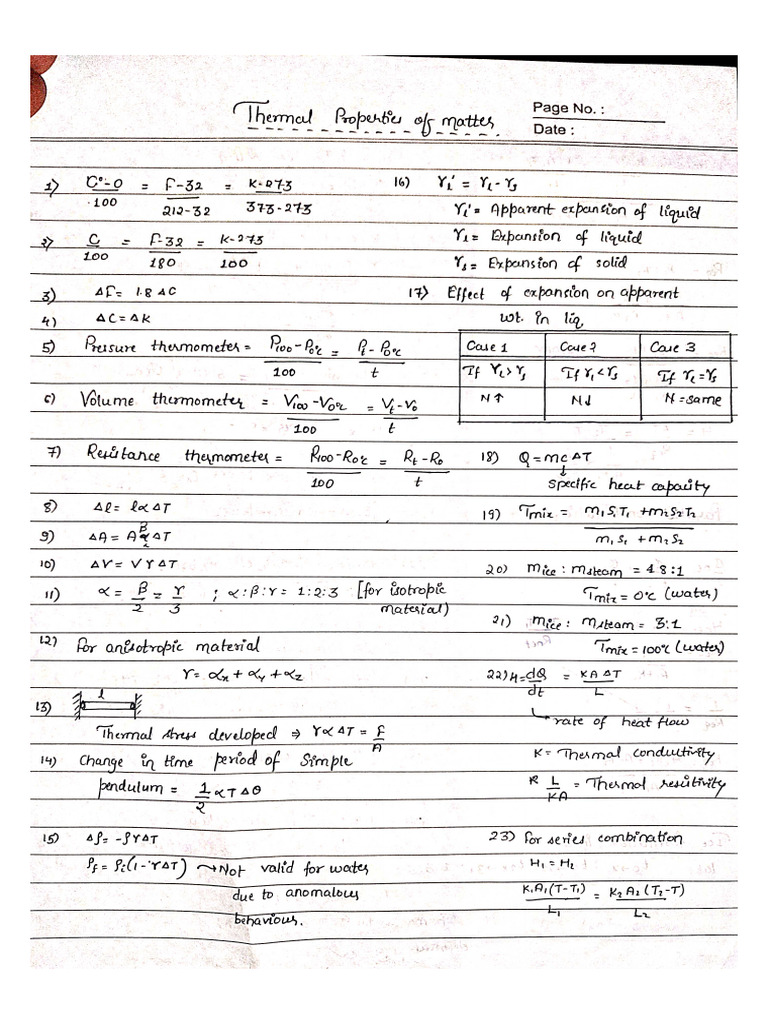 Thermal Properties of matter
Page No. :
Date :
1) C°-0/100 = F-32/212-32 = K-273/373-273
2) C/100 = F-32/180 = K-273/100
3) ΔF = 1.8 ΔC
4) ΔC = ΔK
5) Pressure thermometer = P100-P0°c/100 = Pt-P0°c/t
6) Volume thermometer = V100-V0°c/100 = Vt-V0/t
7) Resistance thermometer = R100-R0°c/100 = Rt-R0/t
8) Δl = lαΔT
9) ΔA = AβΔT
10) ΔV = VγΔT
11) α = β/2 = γ/3 ; α:β:γ = 1:2:3 [for isotropic
material)
12) For anisotropic material
γ = αx + αy + αz
13) l
Thermal stress developed ⇒ YαΔT = F/A
14) Change in time period of simple
pendulum = 1/2 αTΔθ
15) Δρ = -ργΔT
ρf = ρi(1-γΔT) → Not valid for water
due to anomalous
behavious.
16) γl' = γl - γs
γl' = Apparent expansion of liquid
γl = Expansion of liquid
γs = Expansion of solid
17) Effect of expansion on apparent
wt. in liq
Case 1 Case 2 Case 3
If γl > γs If γl < γs If γl = γs
N↑ N↓ N = same
18) Q = mcΔT
specific heat capacity
19) Tmix = m1S1T1 + m2S2T2/m1S1 + m2S2
20) mice : msteam = 48:1
Tmix = 0°c (water)
21) mice : msteam = 3:1
Tmix = 100°c (water)
22) H = dQ/dt = KAΔT/L
rate of heat flow
K = Thermal conductivity
R L/KA = Thermal resitivity
23) For series combination
H1 = H2
K1A1(T-T1)/L1 = K2A2(T2-T)/L2